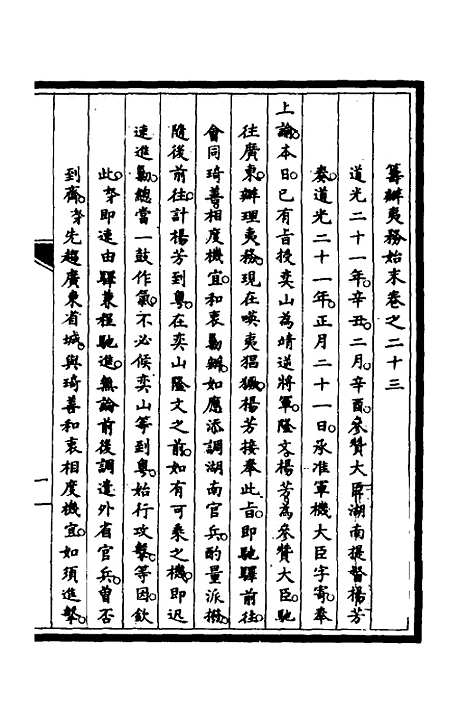 籌辦夷務始末卷之二十三
道光二十一年。辛丑。二月。辛酉。參贊大臣湖南提督楊芳
奏。道光二十一年。正月二十一日。承准軍機大臣字寄。奉
上諭。本日已有旨授奕山為靖逆將軍。隆文楊芳為參贊大臣。馳
往廣東。辦理夷務。現在嘆夷猖獗。楊芳接奉此旨。即馳驛前往
會同琦善相度機宜。和衷勦辦。如應添調湖南官兵。酌量派撥。
隨後前往。計楊芳到粵。在奕山隆文之前。如有可乘之機。即迅
速進勦。總當一鼓作氣。不必候奕山等到粵。始行攻擊。等因。欽
此。𠦑即速由驛兼程馳進。無論前後調遣外省官兵。曾否
到齊。𠦑先趨廣東省城。與琦善和衷相度機宜。如須進擊。
一